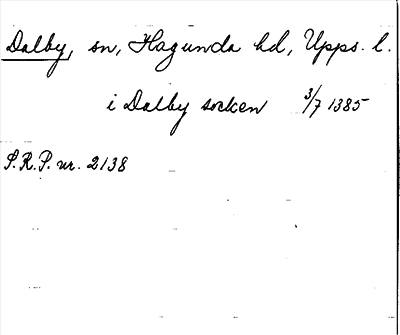 Dalby, sn, Hagunda hd, Upps. l.
i Dalby socken 3/7 1385
S.R.P. nr. 2138